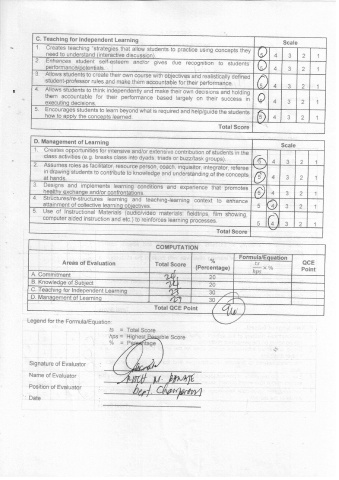 C. Teaching for Independent Learning
Scale
1. Creates teaching strategies that allow students to practice using concepts they
need to understand (interactive discussion).
5 4 3 2 1
2. Enhances student self-esteem and/or gives due recognition to students
performance/potentials.
5 4 3 2 1
3. Allows students to create their own course with objectives and realistically defined
student-professor rules and make them accountable for their performance.
5 4 3 2 1
4. Allows students to think independently and make their own decisions and holding
them accountable for their performance based largely on their success in
executing decisions.
4 3 2 1
5. Encourages students to learn beyond what is required and help/guide the students
how to apply the concepts learned.
5 4 3 2 1
Total Score
D. Management of Learning
Scale
1. Creates opportunities for intensive and/or extensive contribution of students in the
class activities (e.g. breaks class into dyads, triads or buzz/task groups).
5 4 3 2 1
2. Assumes roles as facilitator, resource person, coach, inquisitor, integrator, referee
in drawing students to contribute to knowledge and understanding of the concepts
at hands.
5 4 3 2 1
3. Designs and implements learning conditions and experience that promotes
healthy exchange and/or confrontations.
5 4 3 2 1
4. Structures/re-structures learning and teaching-learning context to enhance
attainment of collective learning objectives.
5 4 3 2 1
5. Use of Instructional Materials (audio/video materials: fieldtrips, film showing,
computer aided instruction and etc.) to reinforces learning processes.
5 4 3 2 1
Total Score
COMPUTATION
Areas of Evaluation
Total Score
%
(Percentage)
Formula/Equation
ts
hps x %
QCE
Point
A. Commitment
20
B. Knowledge of Subject
20
C. Teaching for Independent Learning 23 30
D. Management of Learning 23 30
Total QCE Point
Legend for the Formula/Equation:
ts = Total Score
hps = Highest Possible Score
% = Percentage
Signature of Evaluator
Name of Evaluator
Position of Evaluator Dept. Chairperson
Date